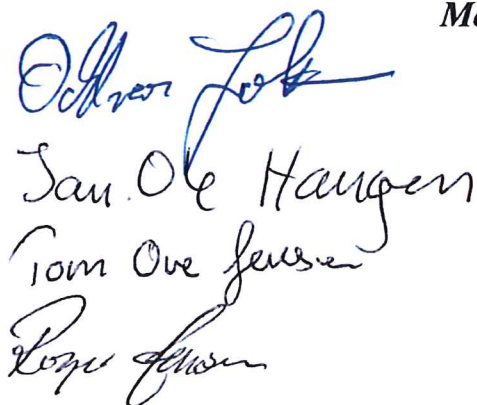 Me
Oddvar
Jan Ole Haugen
Tom Ove Jensen
Roger Jensen